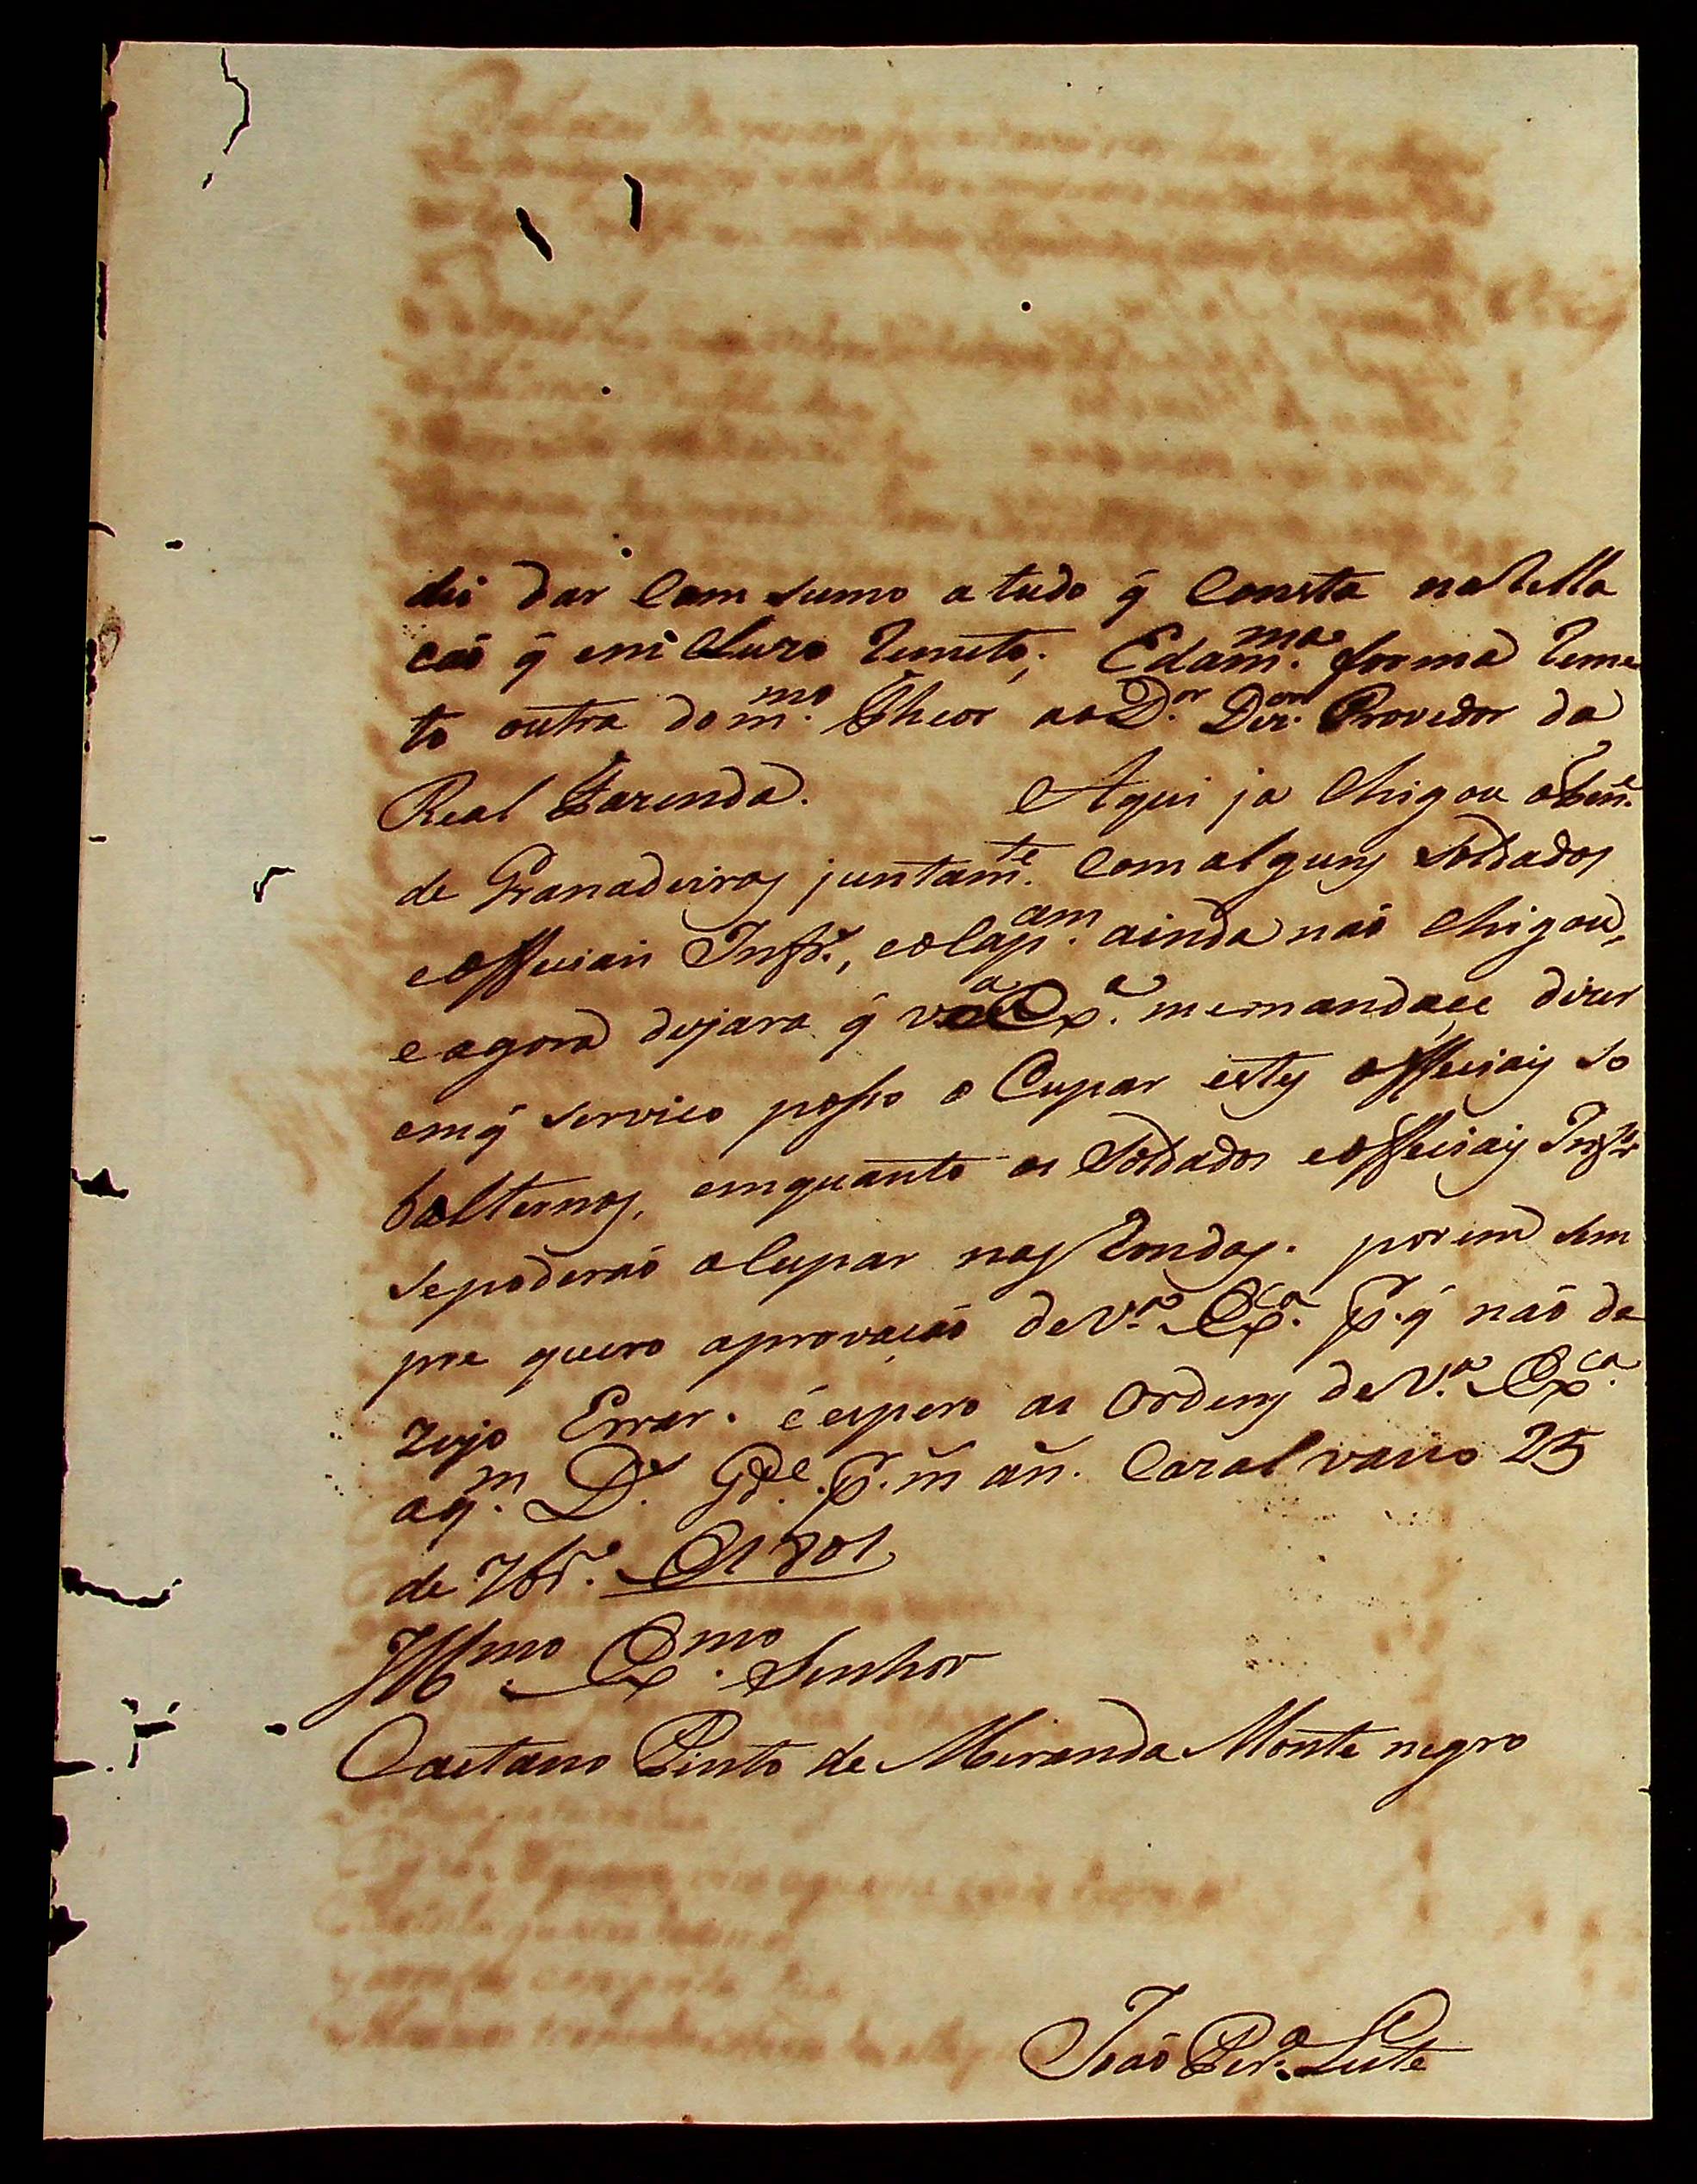 dei dar Com sumo a tudo q̃ Consta na Rella
caõ q̃ em Cluzo Remeto; E da m.ma forma Reme
to outra do m.mo Theor ao D.or Provedor da
Real Fazenda. Aqui ja Chigou o Then.e
de Granadeiros juntam.te Com alguns Soldados
e officiais Infr.es, e o Cap.am ainda naõ Chigou,
e agora dezjara q̃ V.a Ex.a me mandace dizer
em q̃ servico posso o Cupar estes officiais so
balternos, emquanto os Soldados e officiais Infr.es
se poderaõ o Cupar nas Rondas. porem sem
pre quero aprovaçaõ de V.a Ex.ca p.r q̃ naõ de
zejo Errar. é espero as ordens de V.a Ex.ca
a q.m D.s G.de p.r m̃ añ. Cazal vasco 25
de 7br.o de 1801
Ill.mo Ex.mo Senhor
Caetano Pinto de Miranda Monte negro
Joaõ Per.a Leite